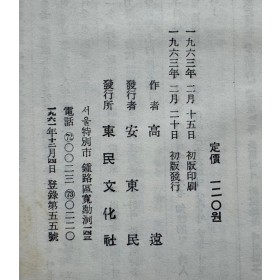 定價 一二〇원
一九六三年 二月 十五日 初版印刷
一九六三年 二月 二十日 初版發行
作者 高遠
發行者 安東民
發行所 東民文化社
서울特別市 鍾路區寬勳洞
電話
一九六一年十二月四日 登錄第五五號